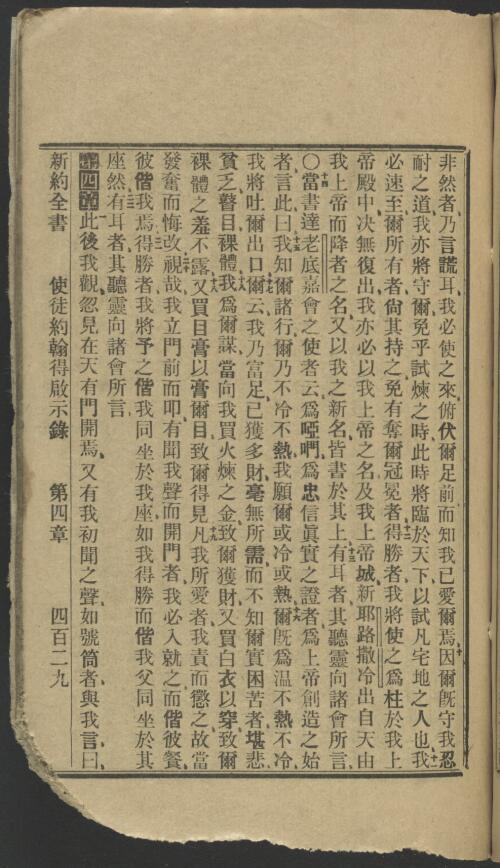 非然者、乃言謊耳、我必使之來、俯伏爾足前、而知我已愛爾焉、因爾旣守我忍
耐之道、我亦將守爾免乎試煉之時、此時將臨於天下、以試凡宅地之人也、十一我
必速至、爾所有者、尙其持之、免有奪爾冠冕者、十二得勝者、我將使之爲柱於我上
帝殿中、决無復出、我亦必以我上帝之名、及我上帝城新耶路撒冷出自天由
我上帝而降者之名、又以我之新名、皆書於其上、十三有耳者、其聽靈向諸會所言、
〇十四當書達老底嘉會之使者云、爲啞㗈、爲忠信眞實之證者、爲上帝創造之始
者、言此曰、十五我知爾諸行、爾乃不冷不熱、我願爾或冷或熱、十六爾旣爲温、不熱不冷、
我將吐爾出口、十七爾云我乃富足、已獲多財、毫無所需、而不知爾實困苦者、堪悲、
貧乏、瞽目、裸體、十八我爲爾謀、當向我買火煉之金、致爾獲財、又買白衣以穿、致爾
裸體之羞不露、又買目膏以膏爾目、致爾得見、十九凡我所愛者、我責而懲之、故當
發奮而悔改、二十視哉、我立門前而叩、有聞我聲而開門者、我必入就之、而偕彼餐、
彼偕我焉、二一得勝者、我將予之偕我同坐於我座、如我得勝而偕我父同坐於其
座然、二二有耳者、其聽靈向諸會所言、
第四章 一此後我觀、忽見在天有門開焉、又有我初聞之聲、如號筒者、與我言曰、
新約全書 使徒約翰得啟示錄 第四章 四百二九